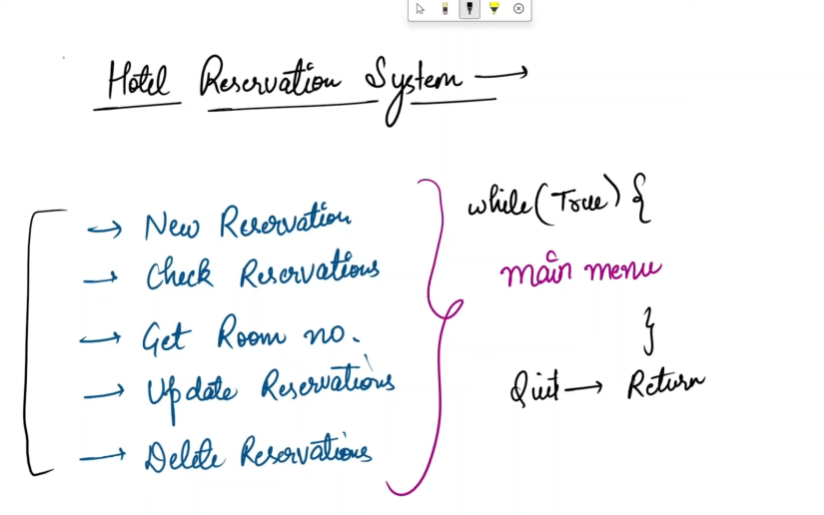 Hotel Reservation System →
→ New Reservation
→ Check Reservations
→ Get Room no.
→ Update Reservations
→ Delete Reservations
while(True) {
main menu
}
Quit → Return